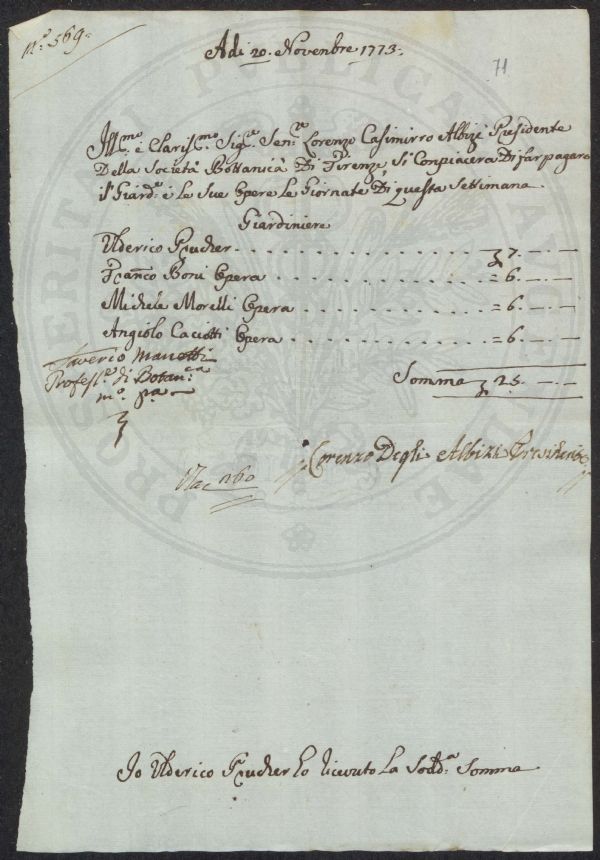 N.º 569.
Adi 20. Novenbre 1773.
71
Ill.mo é Claris.mo Sig.re Sen.re Lorenzo Casimirro Albizi Presidente
Della Società Bottanica Di Firenze Si Conpiacera Di far pagare
il Giard.e é le Sue Opere Le Giornate Di questa Settimana
Giardiniere
Ulderico Prucher . . . . . . . . . . . . 7. — —
Franco Boni Opera . . . . . . . . . . = 6. — —
Michele Morelli Opera . . . . . . . . = 6. — —
Angiolo Caciotti Opera . . . . . . . . = 6. — —
Somma 25. — —
Saverio Manetti
Profess.e di Botan.ca
m.o p.a
Lorenzo Degli Albizi Presidente
160
Io Ulderico Prucher ho ricevuto La Sodd.a Somma
PROSPERITATI PUBLICAE AUGENDAE